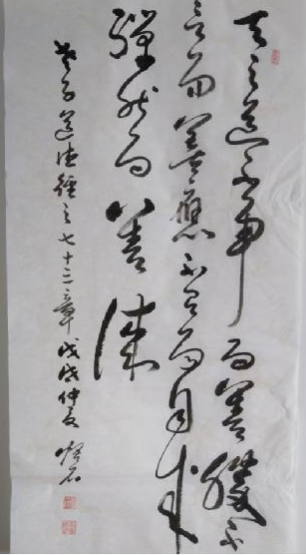 天之道不争而善勝不
言而善應不召而自来
繟然而善谋
老子道德經之七十三章戊戌仲夏